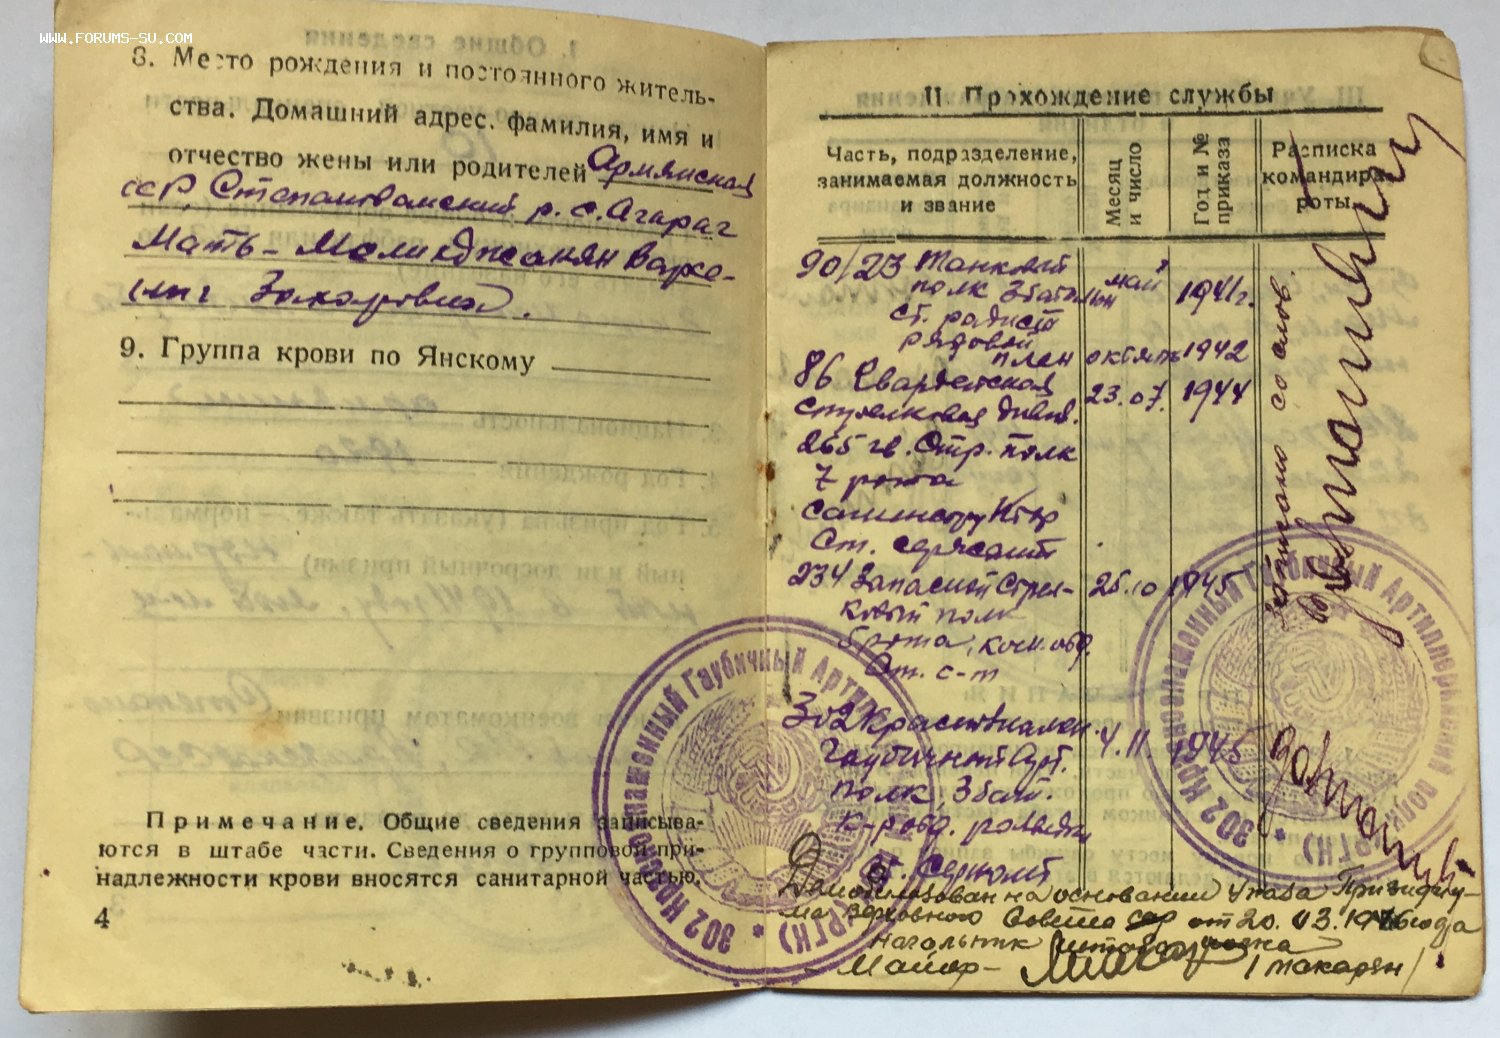 WWW.FORUMS-SU.COM
8. Место рождения и постоянного житель-
ства. Домашний адрес. фамилия, имя и
отчество жены или родителей Армянская
сср, Степанаванский р. с. Агарак
Мать - Мелкиджанян
Захаровна.
9. Группа крови по Янскому
Примечание. Общие сведения записыва-
ются в штабе части. Сведения о групповой при-
надлежности крови вносятся санитарной частью.
4
II Прохождение службы
Часть, подразделение, занимаемая должность и звание
Месяц и число
Год и № приказа
Расписка командира роты
90/23 Танковый май 1941г.
полк 3 батальон
ст. радист
рядовой
плен октябрь 1942
86 Гвардейская 23.07. 1944
стрелковая дивиз.
265 гв. Стр. полк
7 рота
Ст. сержант
234 Запасной Стрел- 25.10 1945
ковый полк
рота, ком. отд.
Ст. с-т
302 Краснознамен. 4.11. 1945
Гаубичный Арт.
полк, 3 бат.
к-р отд. разведки
ст. Сержант
записано со слов.
302 Краснознаменный Гаубичный Артиллерийский полк (РГК)
302 Краснознаменный Гаубичный Артиллерийский полк (РГК)
Демобилизован на основании Указа Президиу-
ма Верховного Совета ссср от 20.03.1946 года
начальник штаба полка
Майор - /Макарян/